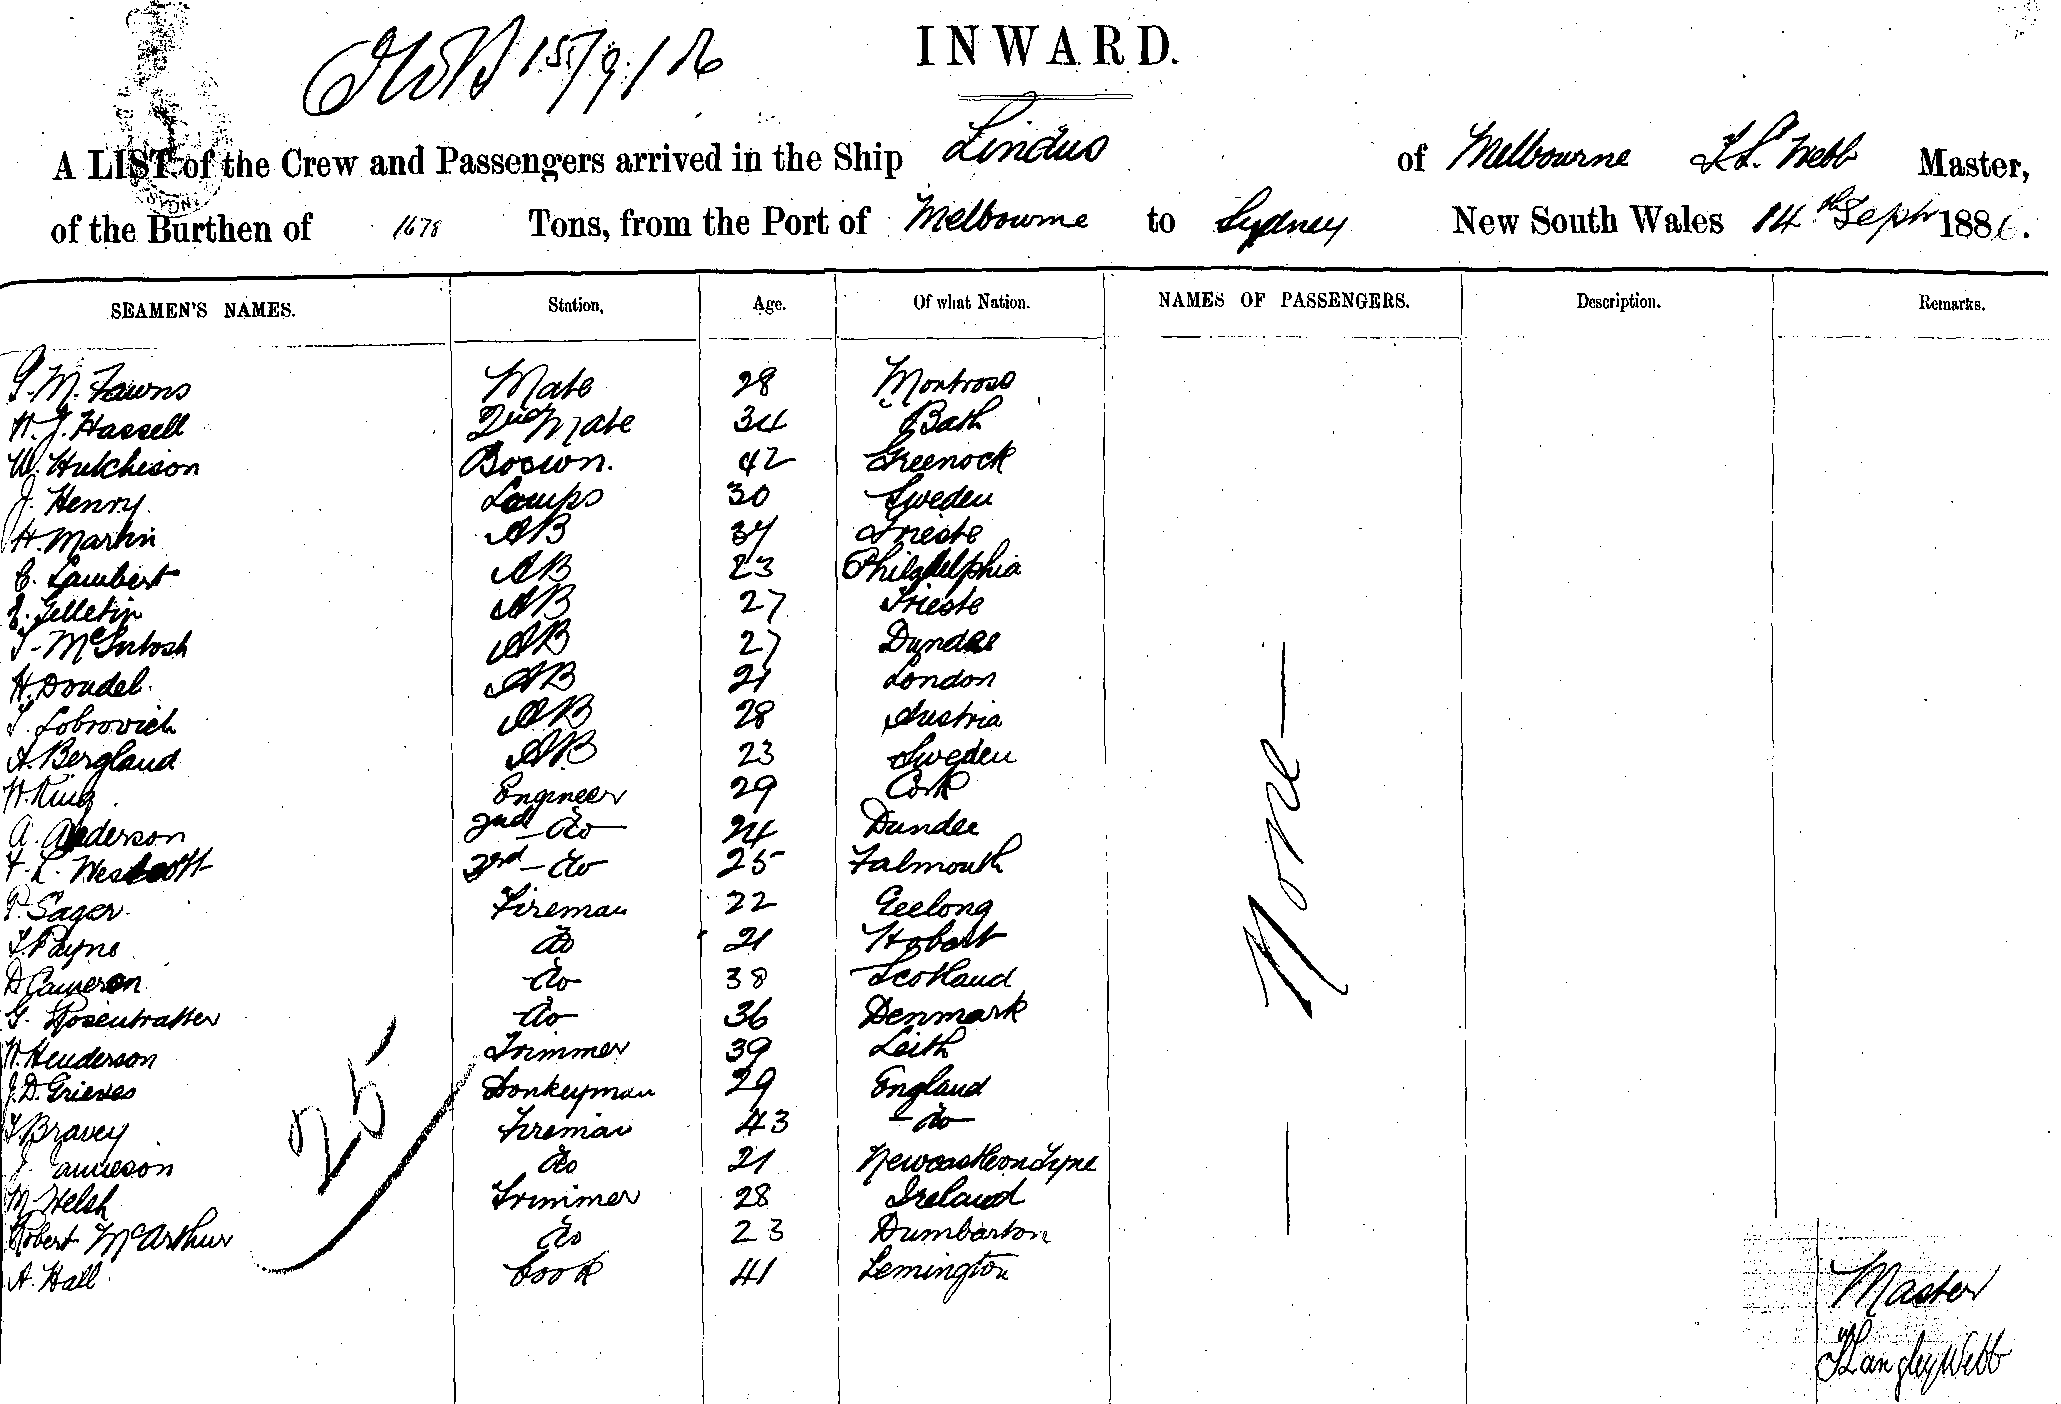 15/9/86
INWARD.
A LIST of the Crew and Passengers arrived in the Ship Lindus of Melbourne T. L. Webb Master,
of the Burthen of 1678 Tons, from the Port of Melbourne to Sydney New South Wales 14th Septr 1886.
SEAMEN'S NAMES. Station. Age. Of what Nation. NAMES OF PASSENGERS. Description. Remarks.
G. M. Fawns Mate 28 Montrose
H. J. Hassell 2nd Mate 34 Bath
W. Hutchison Boswn. 42 Greenock
J. Henry Lamps 30 Sweden
H. Martin AB 34 Trieste
C. Lambert AB 23 Philadelphia
Gelletin AB 27 Trieste
T. McIntosh AB 27 Dundee
H. Doudel AB 21 London
T. Lobrovich AB 28 Austria
A. Bergland AB 23 Sweden
W. King Engineer 29 Cork
A. Anderson 2nd do 24 Dundee
F. L. Westcott 3rd do 25 Falmouth
P. Sager Fireman 22 Geelong
T. Payne do 21 Hobart
D Cameron do 38 Scotland
G. Rosentratter do 36 Denmark
W. Henderson Trimmer 39 Leith
J. D. Grieves Donkeyman 29 England
T Bravey Fireman 43 do
J. Jamieson do 21 Newcastle on Tyne
M. Welsh Trimmer 28 Ireland
Robert McArthur do 23 Dumbarton
A. Hall Cook 41 Lemington
25
None
Master
T Langley Webb